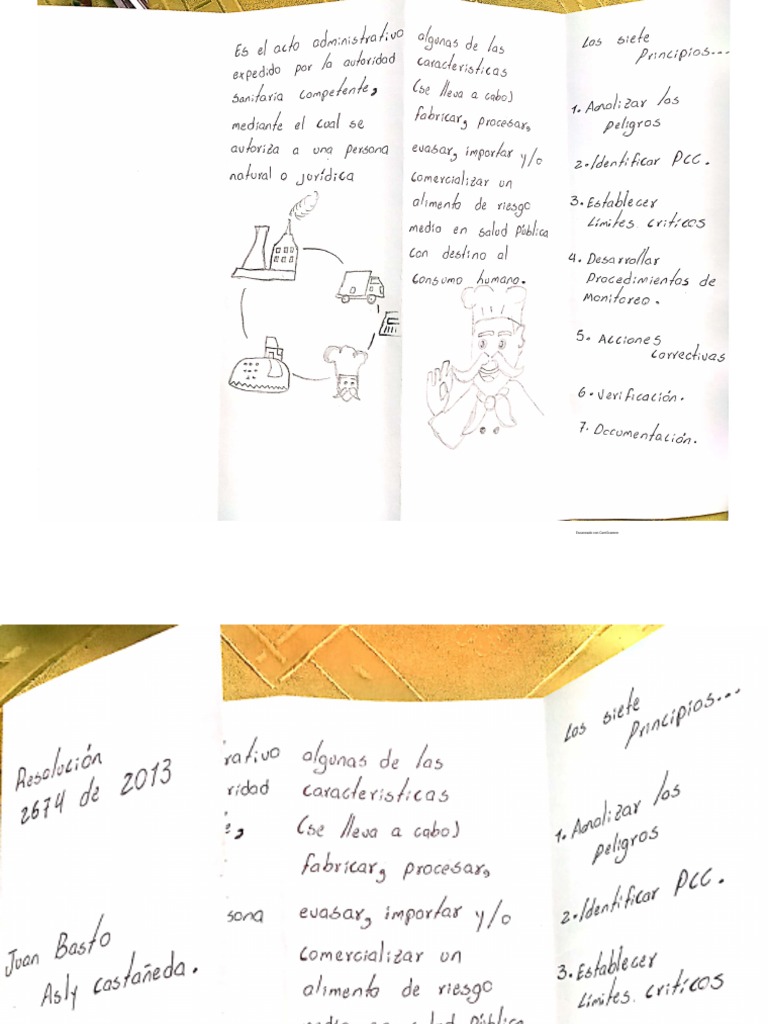 Es el acto administrativo
expedido por la autoridad
sanitaria competente,
mediante el cual se
autoriza a una persona
natural o jurídica
algunas de las
caracteristicas
(se lleva a cabo)
fabricar, procesar,
evasar, importar y/o
comercializar un
alimento de riesgo
medio en salud pública
con destino al
consumo humano.
Los siete
Principios...
1. Analizar los
peligros
2. Identificar PCC.
3. Establecer
Límites críticos
4. Desarrollar
Procedimientos de
monitoreo.
5. Acciones
correctivas
6. Verificación.
7. Documentación.
Escaneado con CamScanner
Resolución
2674 de 2013
Juan Basto
Asly castañeda.
rativo
ridad
e,
sona
algunas de las
caracteristicas
(se lleva a cabo)
fabricar, procesar,
evasar, importar y/o
comercializar un
alimento de riesgo
medio en salud pública
Los siete
Principios...
1. Analizar los
peligros
2. Identificar PCC.
3. Establecer
Límites críticos